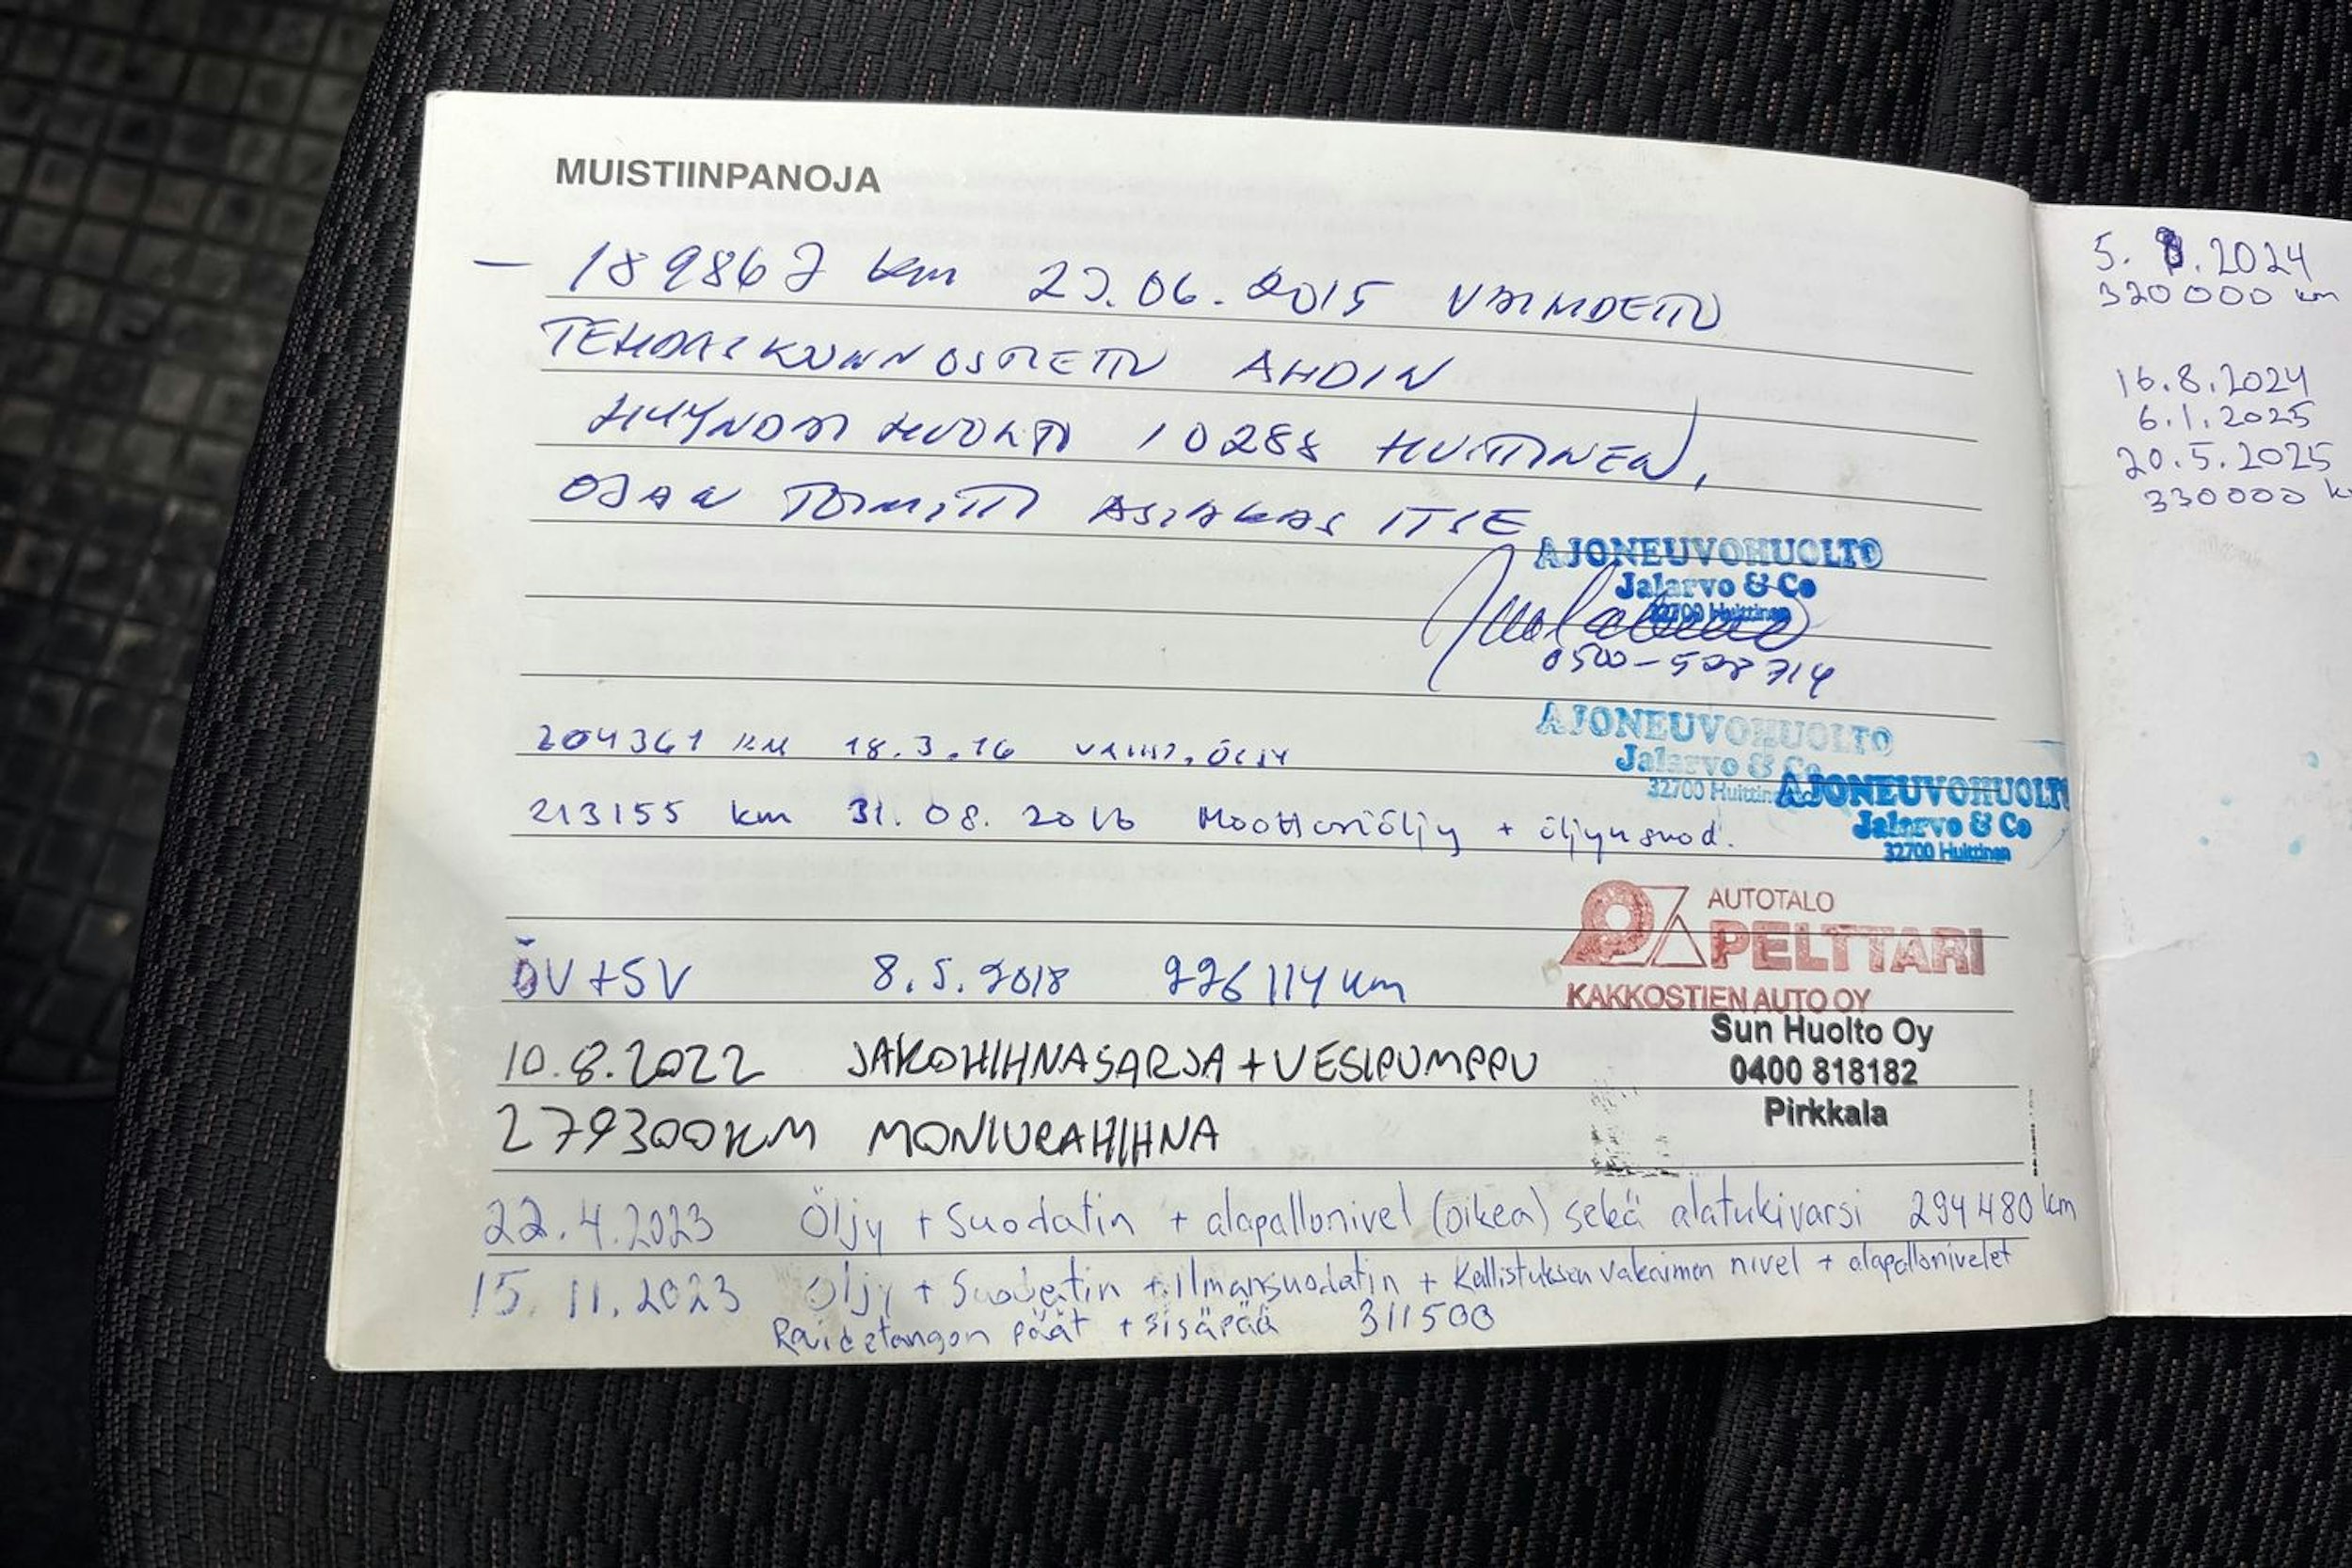 MUISTIINPANOJA
– 189867 km 23.06.2015 VAIHDETTU
TEHDASKUNNOSTETTU AHDIN
HYYNDAI HUOLTO 10288 HUITTINEN,
OSAN TOIMITTI ASIAKAS ITSE
AJONEUVOHUOLTO
Jalarvo & Co
32700 Huittinen
204361 KM 18.3.16 VAIHT. ÖLJY
AJONEUVOHUOLTO
Jalarvo & Co
32700 Huittinen
213155 km 31.08.2016 Moottoriöljy + öljynsuod.
AJONEUVOHUOLTO
Jalarvo & Co
32700 Huittinen
AUTOTALO
PELTTARI
KAKKOSTIEN AUTO OY
ÖV+SV 8.5.2018 226114 km
Sun Huolto Oy
0400 818182
Pirkkala
10.8.2022 JAKOHIHNASARJA + VESIPUMPPU
279300KM MONIURAHIHNA
22.4.2023 Öljy + Suodatin + alapallonivel (oikea) sekä alatukivarsi 294480 km
15.11.2023 Öljy + Suodatin + Ilmansuodatin + Kallistuksen vakaimen nivel + alapallonivelet
Raidetangon päät + sisäpää 311500
5.8.2024
320000 km
16.8.2024
6.1.2025
20.5.2025
330000 k